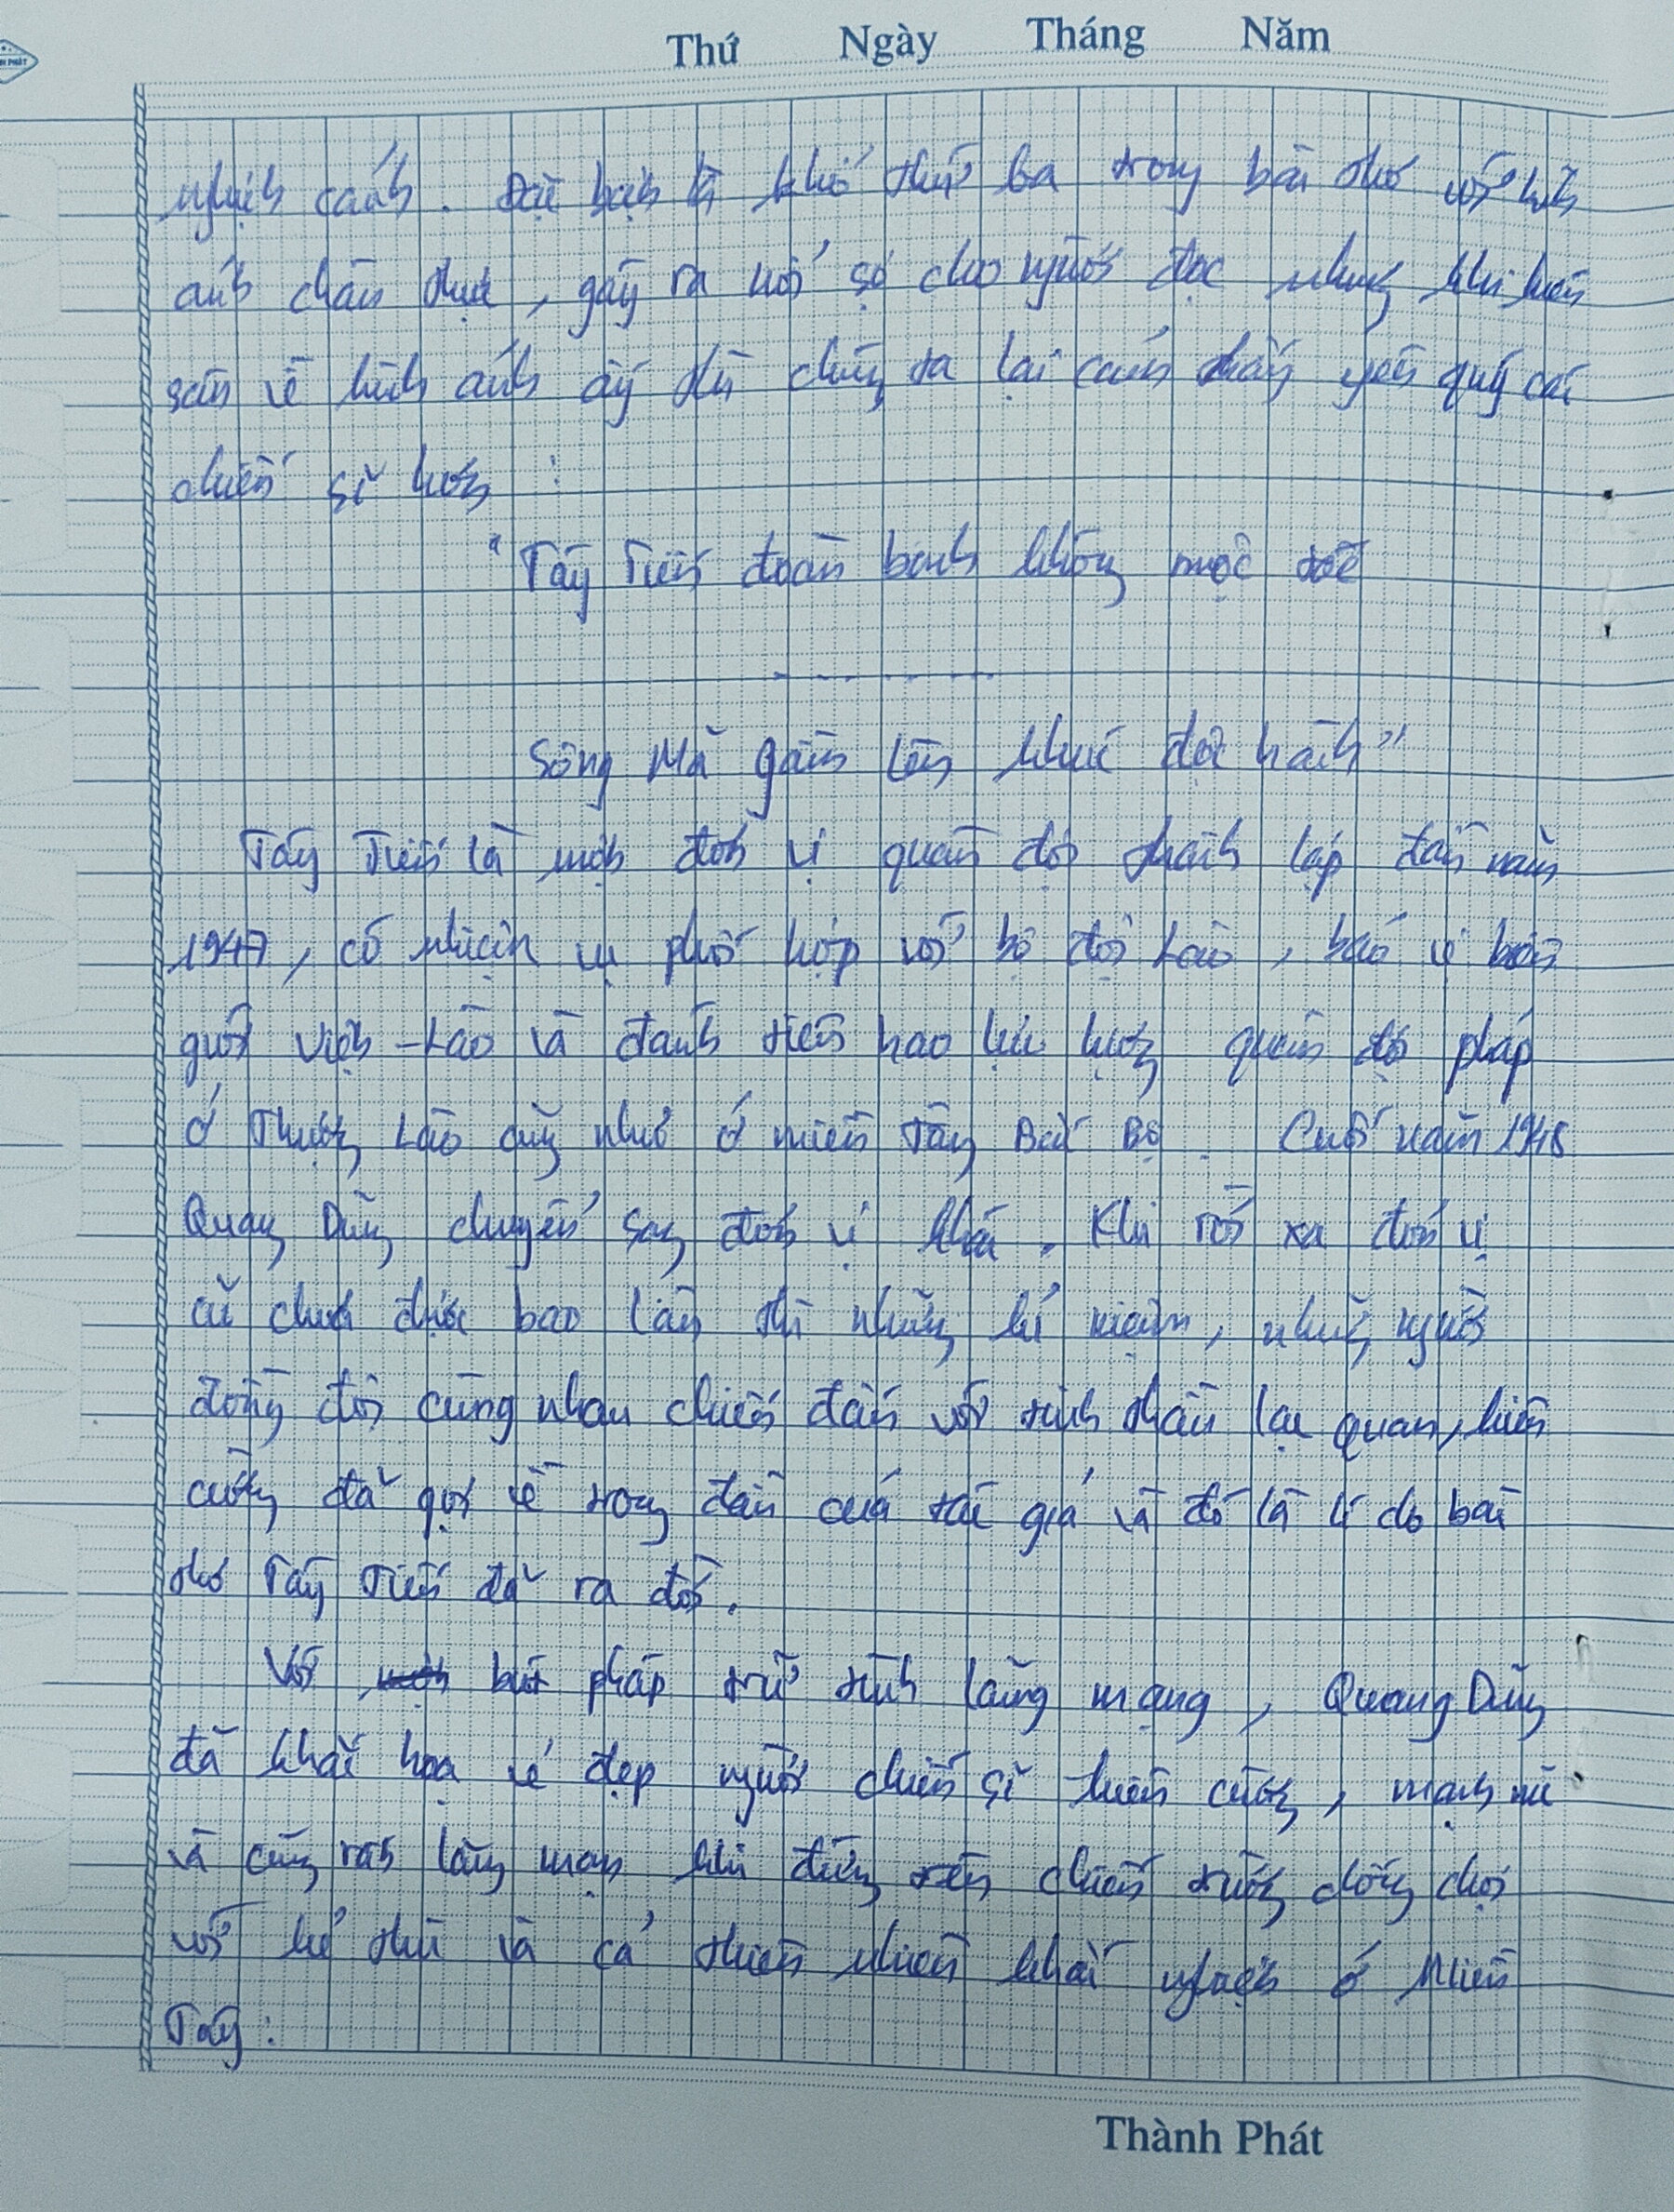 Thứ Ngày Tháng Năm
nghịch cảnh. Đặc biệt là khổ thứ ba trong bài thơ với hình
ảnh chân thực, gây ra nỗi sợ cho người đọc nhưng khi
về hình ảnh ấy thì chúng ta lại cảm thấy yêu quý các
chiến sĩ hơn :
"Tây Tiến đoàn binh không mọc tóc
..........
Sông Mã gầm lên khúc độc hành"
Tây Tiến là một đơn vị quân đội thành lập đầu năm
1947, có nhiệm vụ phối hợp với bộ đội Lào, bảo vệ biên
giới Việt - Lào và đánh tiêu hao lực lượng quân đội pháp
ở Thượng Lào cũng như ở miền Tây Bắc Bộ. Cuối năm 1948
Quang Dũng chuyển sang đơn vị khác. Khi rời xa đơn vị
cũ chưa được bao lâu thì những kỉ niệm, những người
đồng đội cùng nhau chiến đấu với tinh thần lạc quan, kiên
cường đã gợi về trong đầu của tác giả và đó là lí do bài
thơ Tây Tiến đã ra đời.
Với bút pháp trữ tình lãng mạng, Quang Dũng
đã khắc họa vẻ đẹp người chiến sĩ kiên cường, mạnh mẽ
và cũng rất lãng mạn khi đứng trên chiến trường chống chọi
với kẻ thù và cả thiên nhiên khắc nghiệt ở Miền
Tây :
Thành Phát